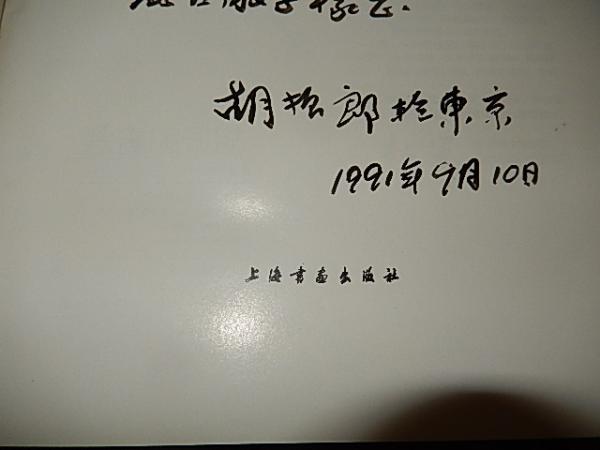 胡振郎於東京
1991年9月10日
上海書画出版社